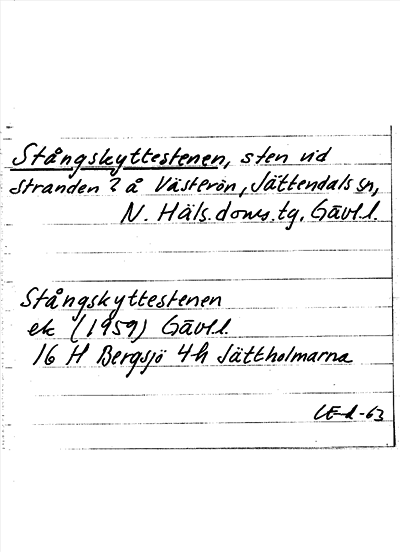 Stångskyttestenen, sten vid
stranden? å Västerön, Jättendals sn,
N. Häls. doms. tg. Gävl. l.
Stångskyttestenen
ek (1959) Gävl. l.
16 H Bergsjö 4h Jättholmarna
-63